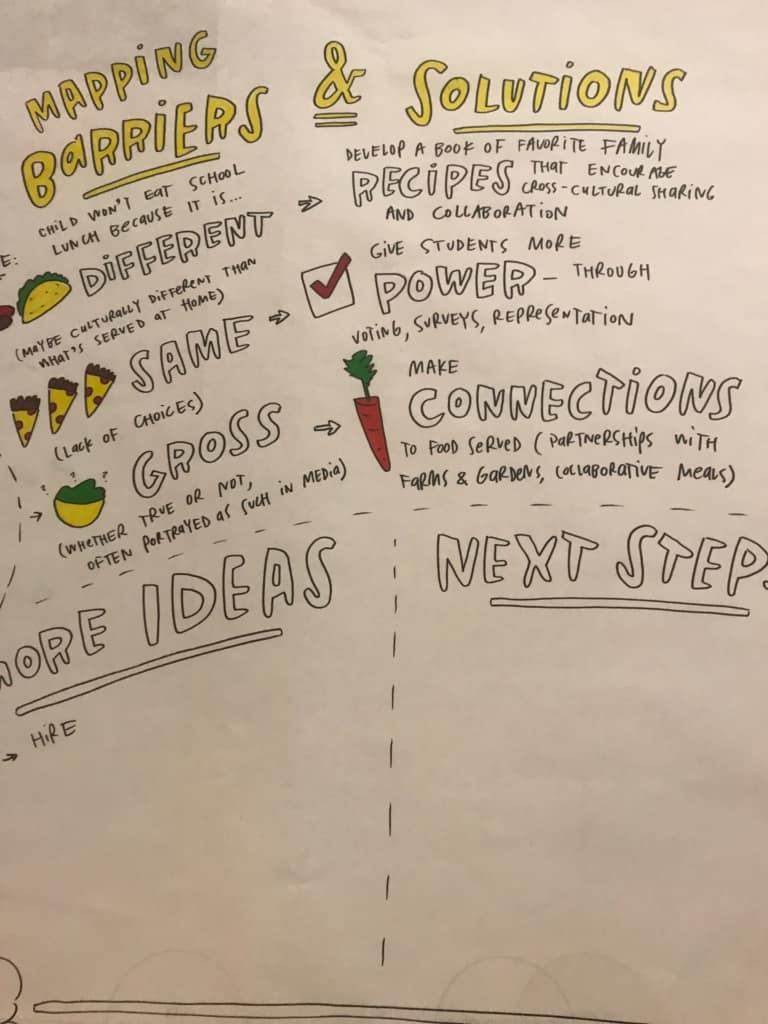 MAPPING
BARRIERS & SOLUTIONS
CHILD WON'T EAT SCHOOL
LUNCH BECAUSE IT IS...
DIFFERENT
(MAYBE CULTURALLY DIFFERENT THAN
WHAT'S SERVED AT HOME)
DEVELOP A BOOK OF FAVORITE FAMILY
RECIPES THAT ENCOURAGE
CROSS-CULTURAL SHARING
AND COLLABORATION
SAME
(LACK OF CHOICES)
GIVE STUDENTS MORE
POWER - THROUGH
VOTING, SURVEYS, REPRESENTATION
GROSS
(WHETHER TRUE OR NOT,
OFTEN PORTRAYED AS SUCH IN MEDIA)
MAKE
CONNECTIONS
TO FOOD SERVED (PARTNERSHIPS WITH
FARMS & GARDENS, COLLABORATIVE MEALS)
MORE IDEAS
HIRE
NEXT STEPS